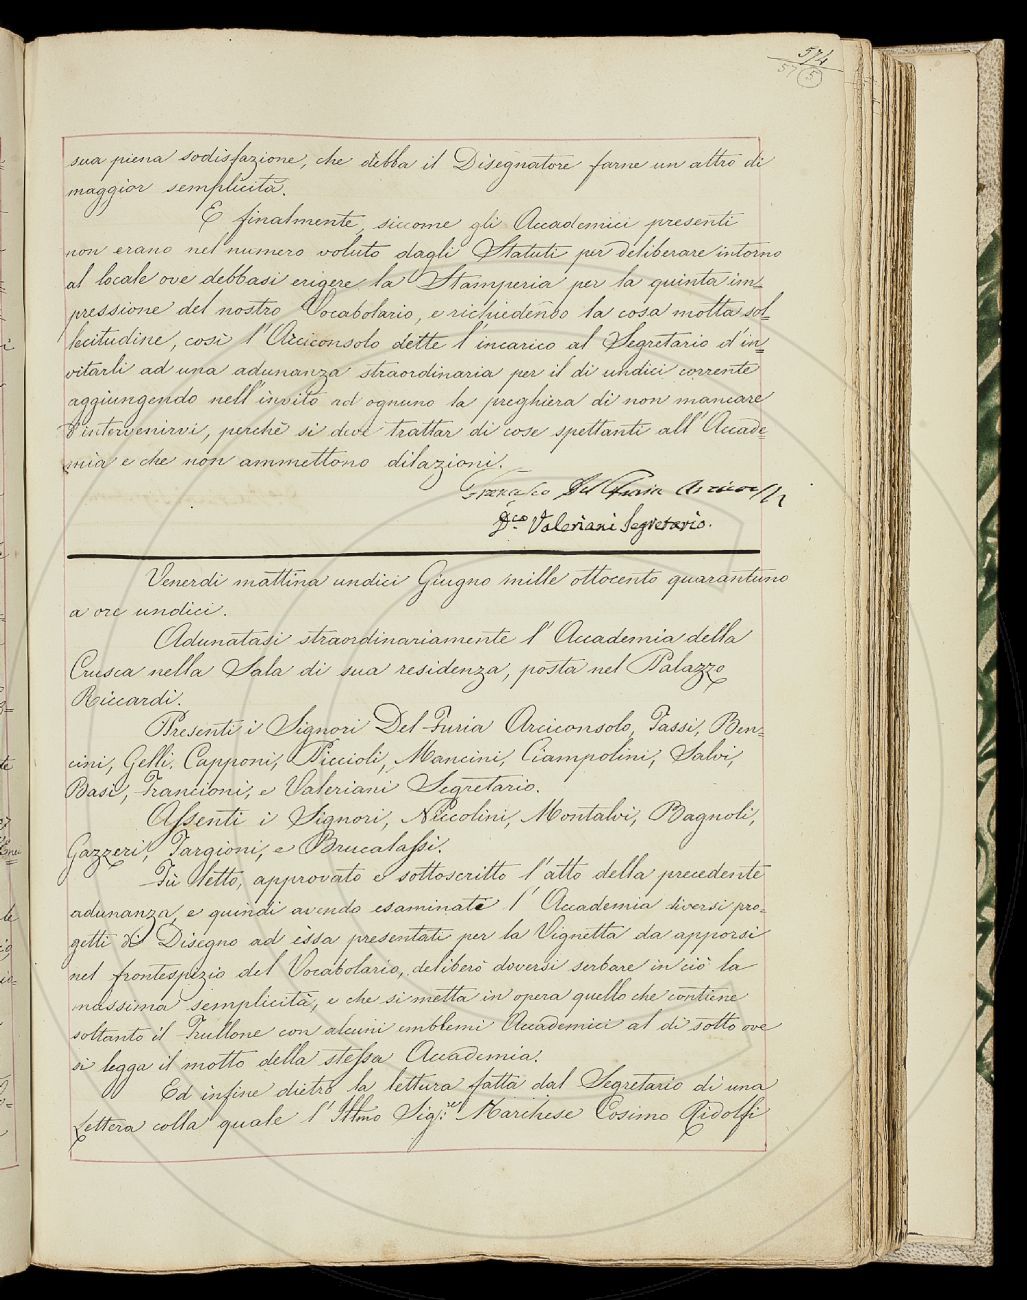 574
57 5
sua piena sodisfazione, che debba il Disegnatore farne un altro di
maggior semplicità.
E finalmente, siccome gli Accademici presenti
non erano nel numero voluto dagli Statuti per deliberare intorno
al locale ove debbasi erigere la Stamperia per la quinta im=
pressione del nostro Vocabolario, e richiedendo la cosa molta sol=
lecitudine, così l'Arciconsolo dette l'incarico al Segretario d'in=
vitarli ad una adunanza straordinaria per il di undici corrente
aggiungendo nell'invito ad ognuno la preghiera di non mancare
d'intervenirvi, perchè si deve trattar di cose spettanti all'Accade=
mia e che non ammettono dilazioni.
Francesco Del Furia
Valeriani Segretario.
Venerdi mattina undici Giugno mille ottocento quarantuno
a ore undici.
Adunatasi straordinariamente l'Accademia della
Crusca nella Sala di sua residenza, posta nel Palazzo
Riccardi.
Presenti i Signori Del-Furia Arciconsolo, Tassi, Ben=
cini, Gelli. Capponi, Piccioli, Mancini, Ciampolini, Salvi,
Basi, Francioni, e Valeriani Segretario.
Assenti i Signori, Niccolini, Montalvi, Bagnoli,
Gazzeri, Targioni, e Brucalassi.
Fù letto, approvato e sottoscritto l'atto della precedente
adunanza, e quindi avendo esaminate l'Accademia diversi pro=
getti di Disegno ad essa presentati per la Vignetta da apporsi
nel frontespizio del Vocabolario, deliberò doversi serbare in ciò la
massima semplicità, e che si metta in opera quello che contiene
soltanto il Frullone con alcuni emblemi Accademici al di sotto ove
si legga il motto della stessa Accademia.
Ed infine dietro la lettura fatta dal Segretario di una
Lettera colla quale l'Illmo Sig:re Marchese Cosimo Ridolfi